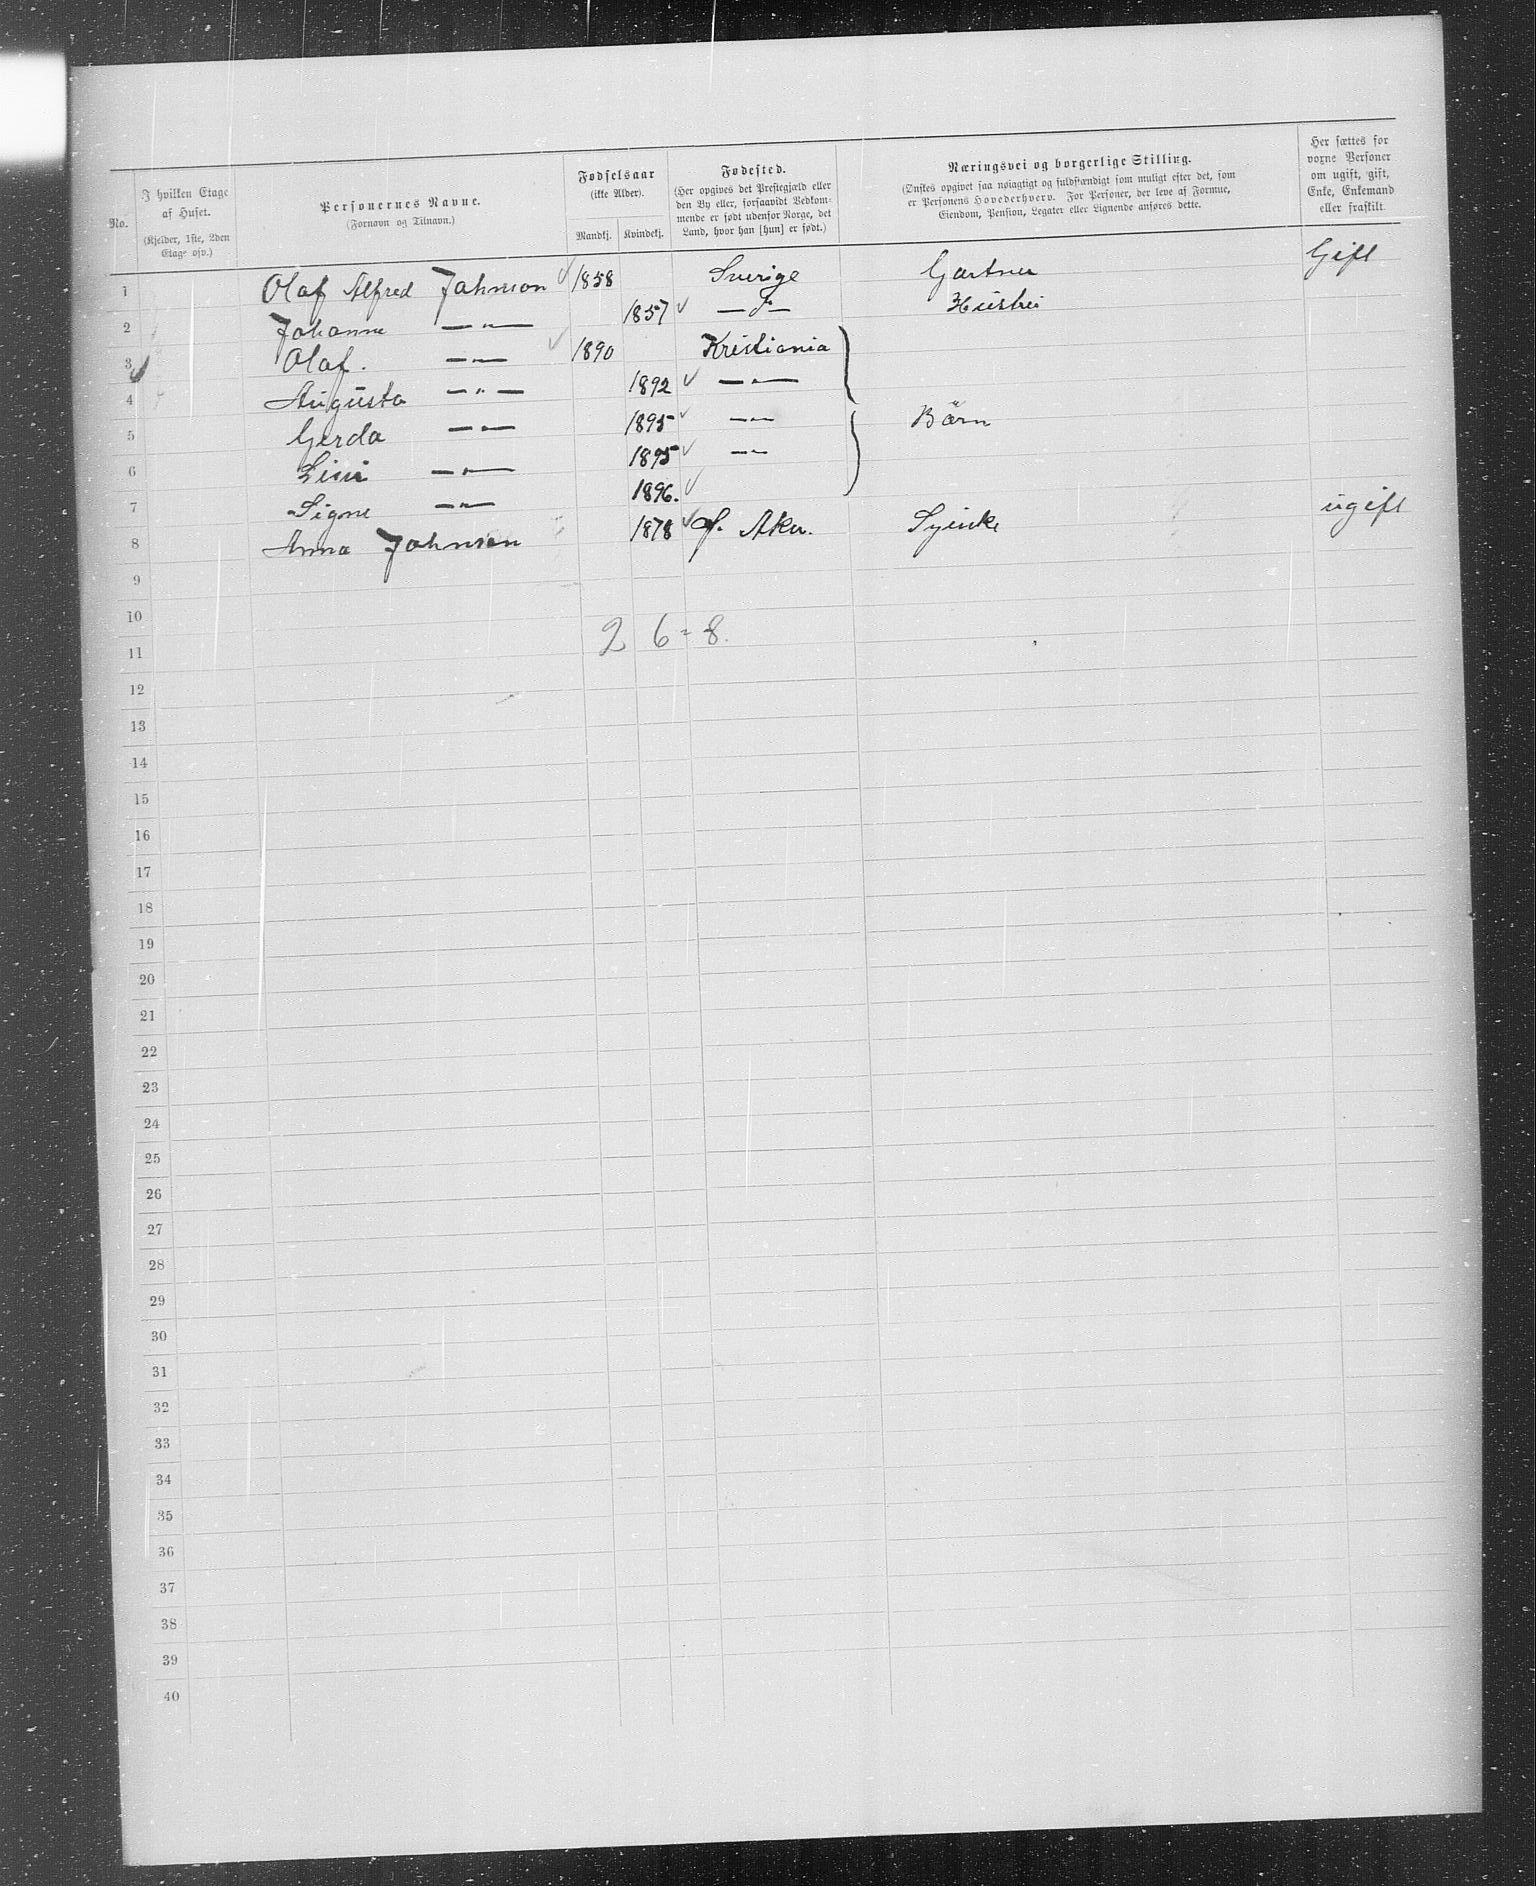 No.
I hvilken Etage af Huset.
(Kjelder, 1ste, 2den Etage osv.)
Personernes Navne.
(Fornavn og Tilnavn.)
Fødselsaar
(ikke Alder).
Mandkj. Kvindekj.
Fødested.
(Her opgives det Prestegjæld eller
den By eller, forsaavidt Vedkom-
mende er født udenfor Norge, det
Land, hvor han [hun] er født.)
Næringsvei og borgerlige Stilling.
(Ønskes opgivet saa nøiagtigt og fuldstændigt som muligt efter det, som
er Personens Hovederhverv. For Personer, der leve af Formue,
Eiendom, Pension, Legater eller Lignende anføres dette.
Her sættes for
voxne Personer
om ugift, gift,
Enke, Enkemand
eller fraskilt.
1 Olaf Alfred Johnson 1858 Sverige Gartner Gift
2 Johanne — " — 1857 Hustru
3 Olaf. — " — 1890 Kristiania
4 Augusta — " — 1892 — " —
5 Gerda — " — 1895 — " — Börn
6 — " — 1895 — " —
7 Signe — " — 1896.
8 Anna Johnson 1878 Aker. ugift
9
10
2 6 = 8.
11
12
13
14
15
16
17
18
19
20
21
22
23
24
25
26
27
28
29
30
31
32
33
34
35
36
37
38
39
40